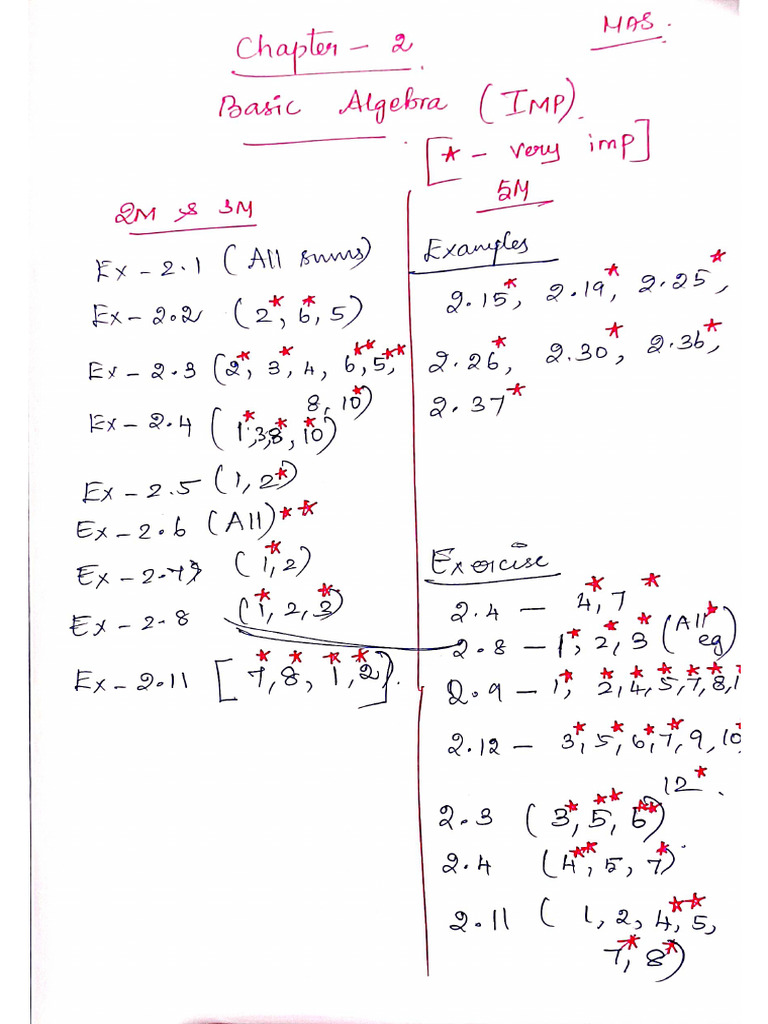 MAS.
Chapter - 2
Basic Algebra (IMP).
[* - very imp]
2M & 3M
Ex - 2.1 (All sums)
Ex - 2.2 (2*, 6*, 5)
Ex - 2.3 (2*, 3*, 4, 6**, 5**,
8, 10*)
Ex - 2.4 (1*, 3, 8*, 10*)
Ex - 2.5 (1, 2*)
Ex - 2.6 (All)**
Ex - 2.7 (1*, 2)
Ex - 2.8 (1*, 2, 3*)
Ex - 2.11 [7*, 8*, 1*, 2*].
5M
Examples
2.15*, 2.19*, 2.25*,
2.26*, 2.30*, 2.36*,
2.37*
Exercise
2.4 - 4*, 7*
2.8 - 1*, 2*, 3* (All* eg)
2.9 - 1*, 2*, 4*, 5*, 7*, 8*,
2.12 - 3*, 5*, 6*, 7*, 9, 10*
12*.
2.3 (3*, 5**, 6**)
2.4 (4**, 5, 7*)
2.11 (1, 2, 4**, 5,
7*, 8*)